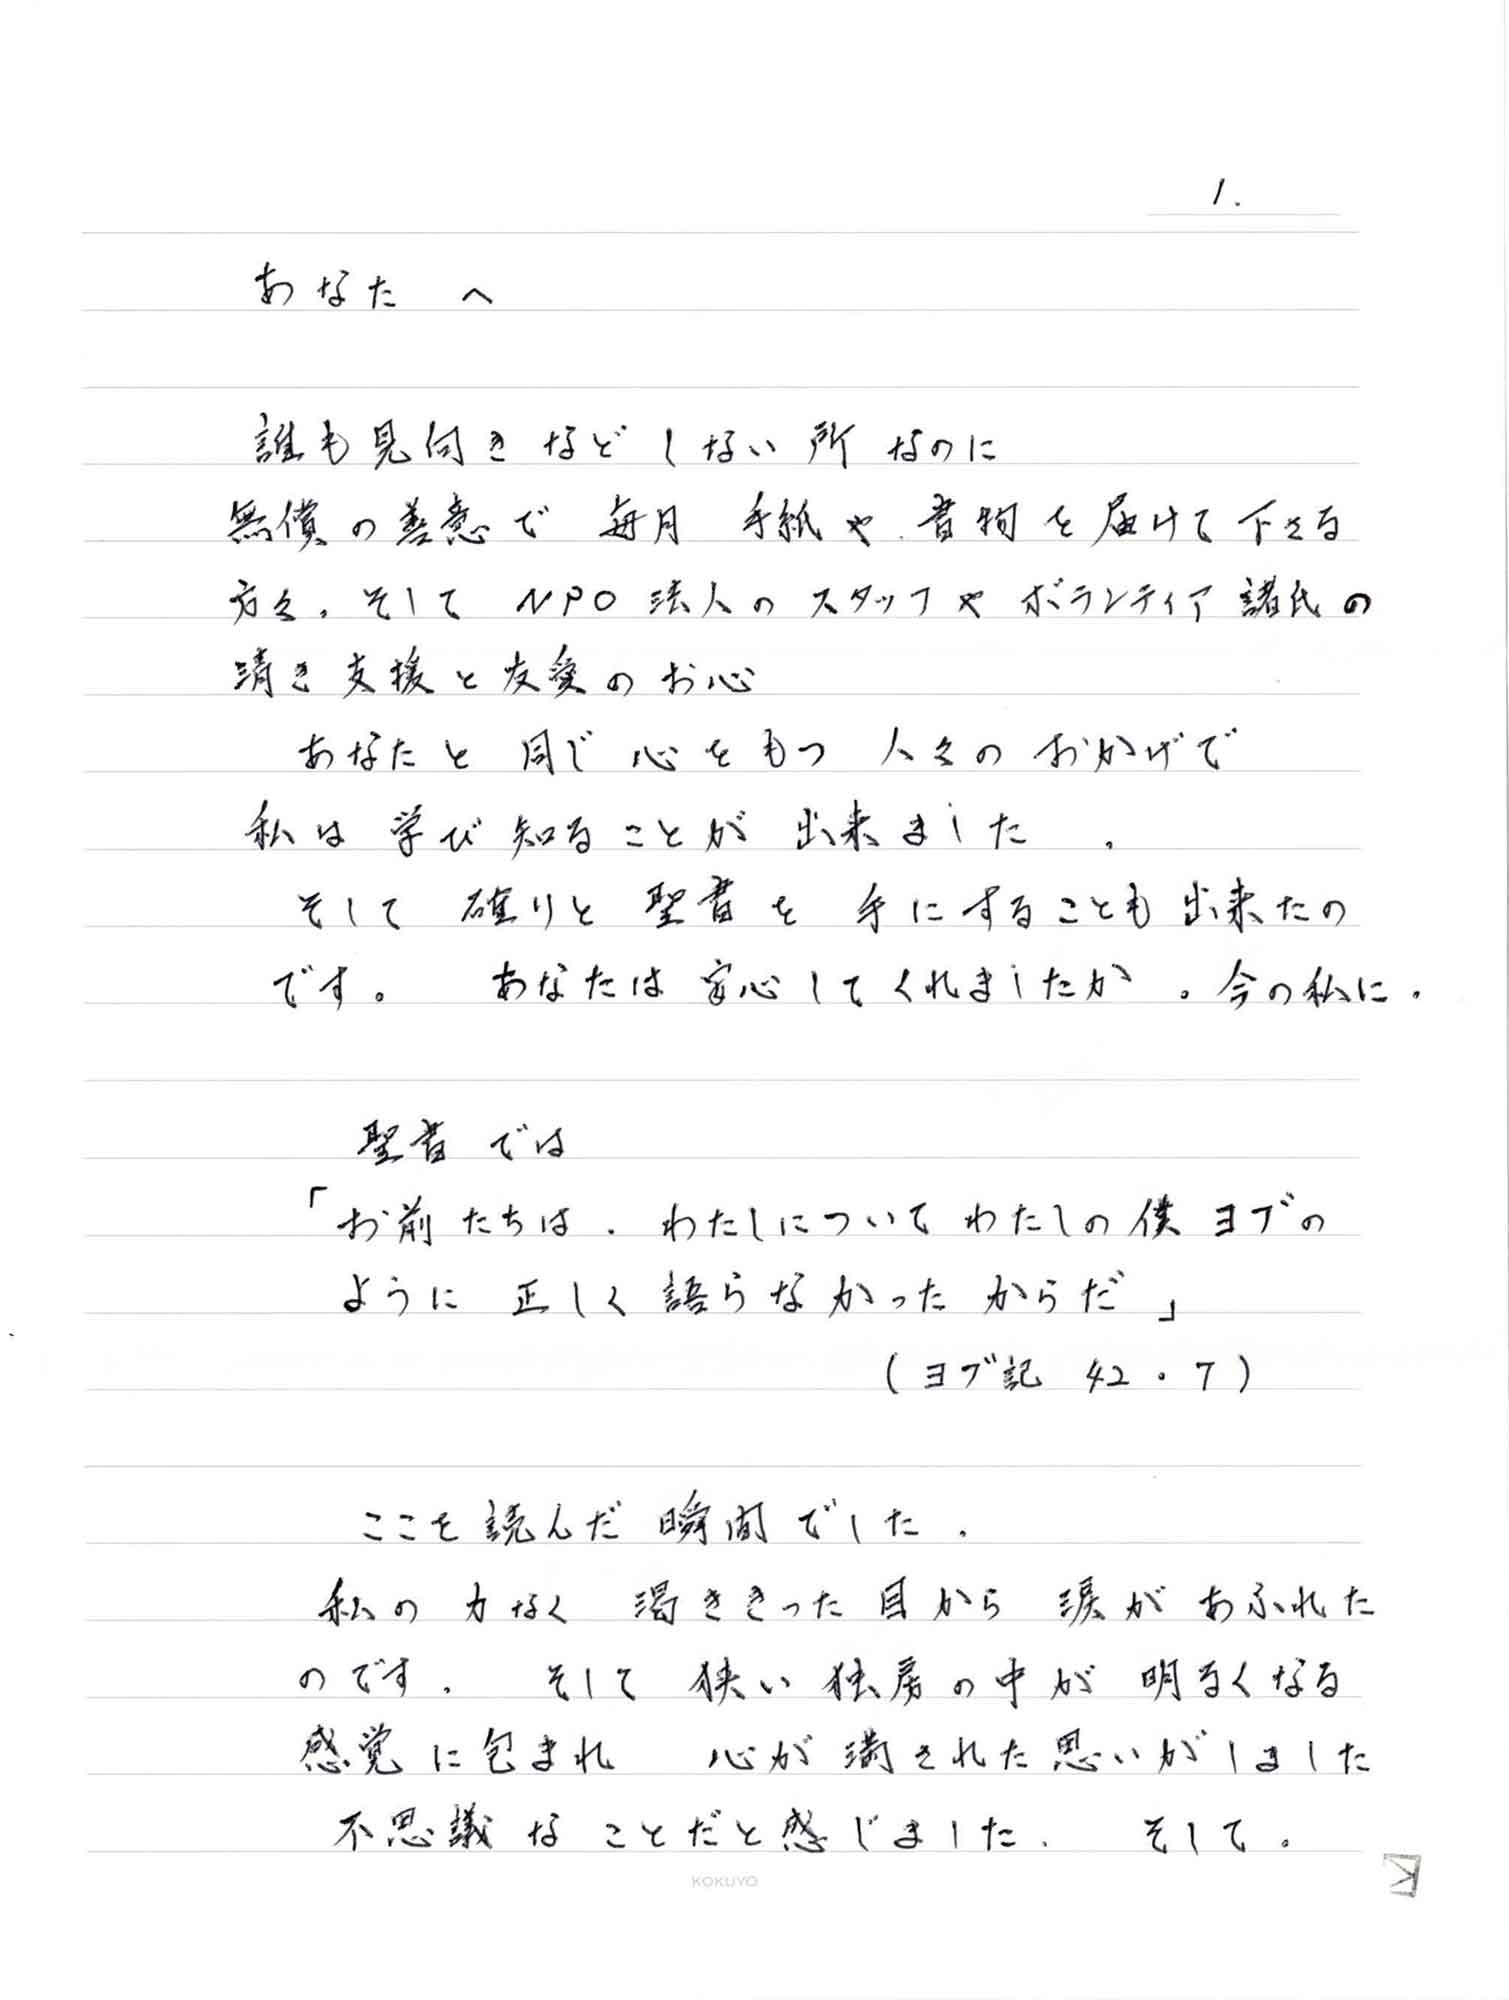 1.
あなた へ
誰も見向きなど しない所 なのに
無償の善意で 毎月 手紙や、書物を届けて下さる
方々。そして NPO 法人の スタッフや ボランティア 諸氏の
清き支援と友愛のお心
あなたと 同じ心をもつ 人々の おかげで
私は 学び知ることが 出来ました 。
そして 確りと 聖書を 手にすることも出来たの
です。 あなたは 安心してくれましたか 。今の私に。
聖書では
「お前たちは、わたしについてわたしの僕ヨブの
ように 正しく語らなかった からだ」
(ヨブ記 42・7)
ここを読んだ瞬間でした。
私の力なく 渇ききった目から 涙が あふれた
のです。 そして 狭い独房の中が 明るくなる
感覚に包まれ 心が満された思いがしました
不思議な ことだと感じました。 そして。
KOKUYO
K